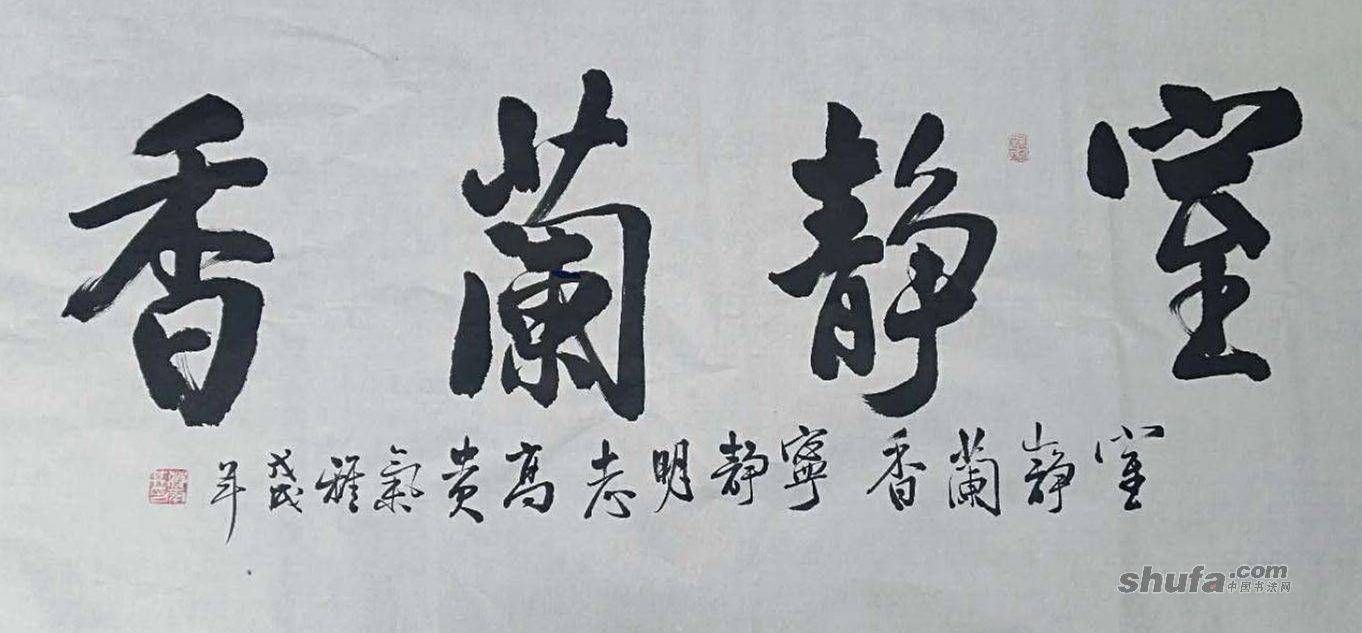 室静蘭香
室静蘭香 寧静明志高贵氣雅戊戌年
shufa.com
中国书法网